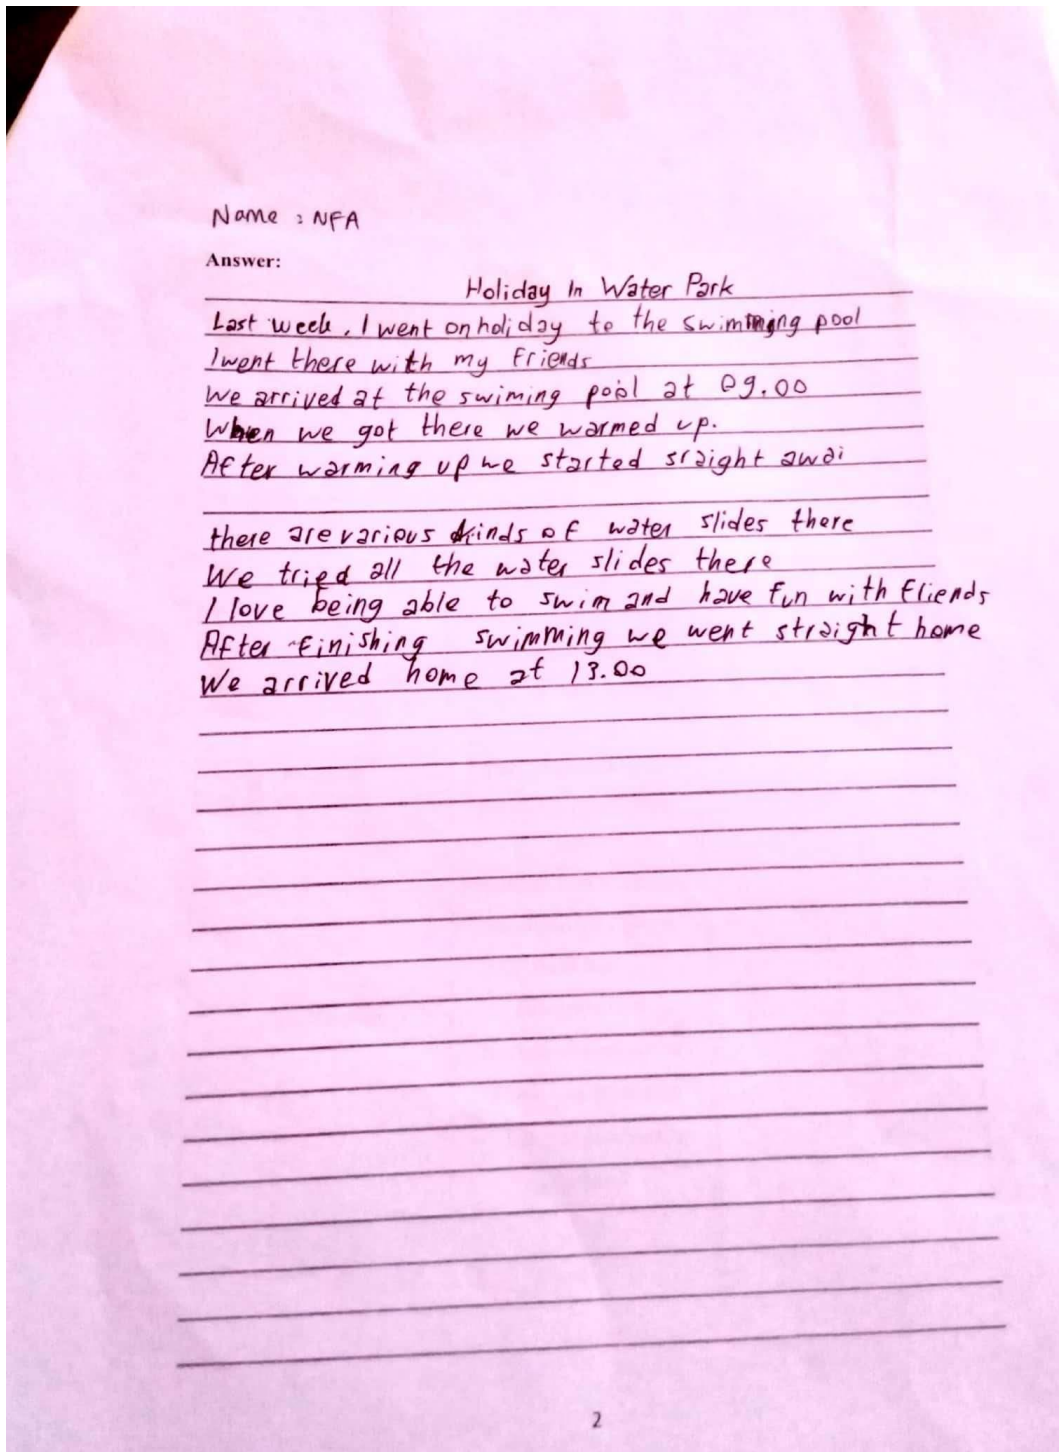 Name : NFA
Answer:
Holiday In Water Park
Last week, I went on holiday to the swimming pool
I went there with my Friends
We arrived at the swiming pool at 09.00
When we got there we warmed up.
After warming up we started sraight awai
there are various kinds of water slides there
We tried all the water slides there
I love being able to swim and have fun with fliends
After finishing swimming we went straight home
We arrived home at 13.00
2